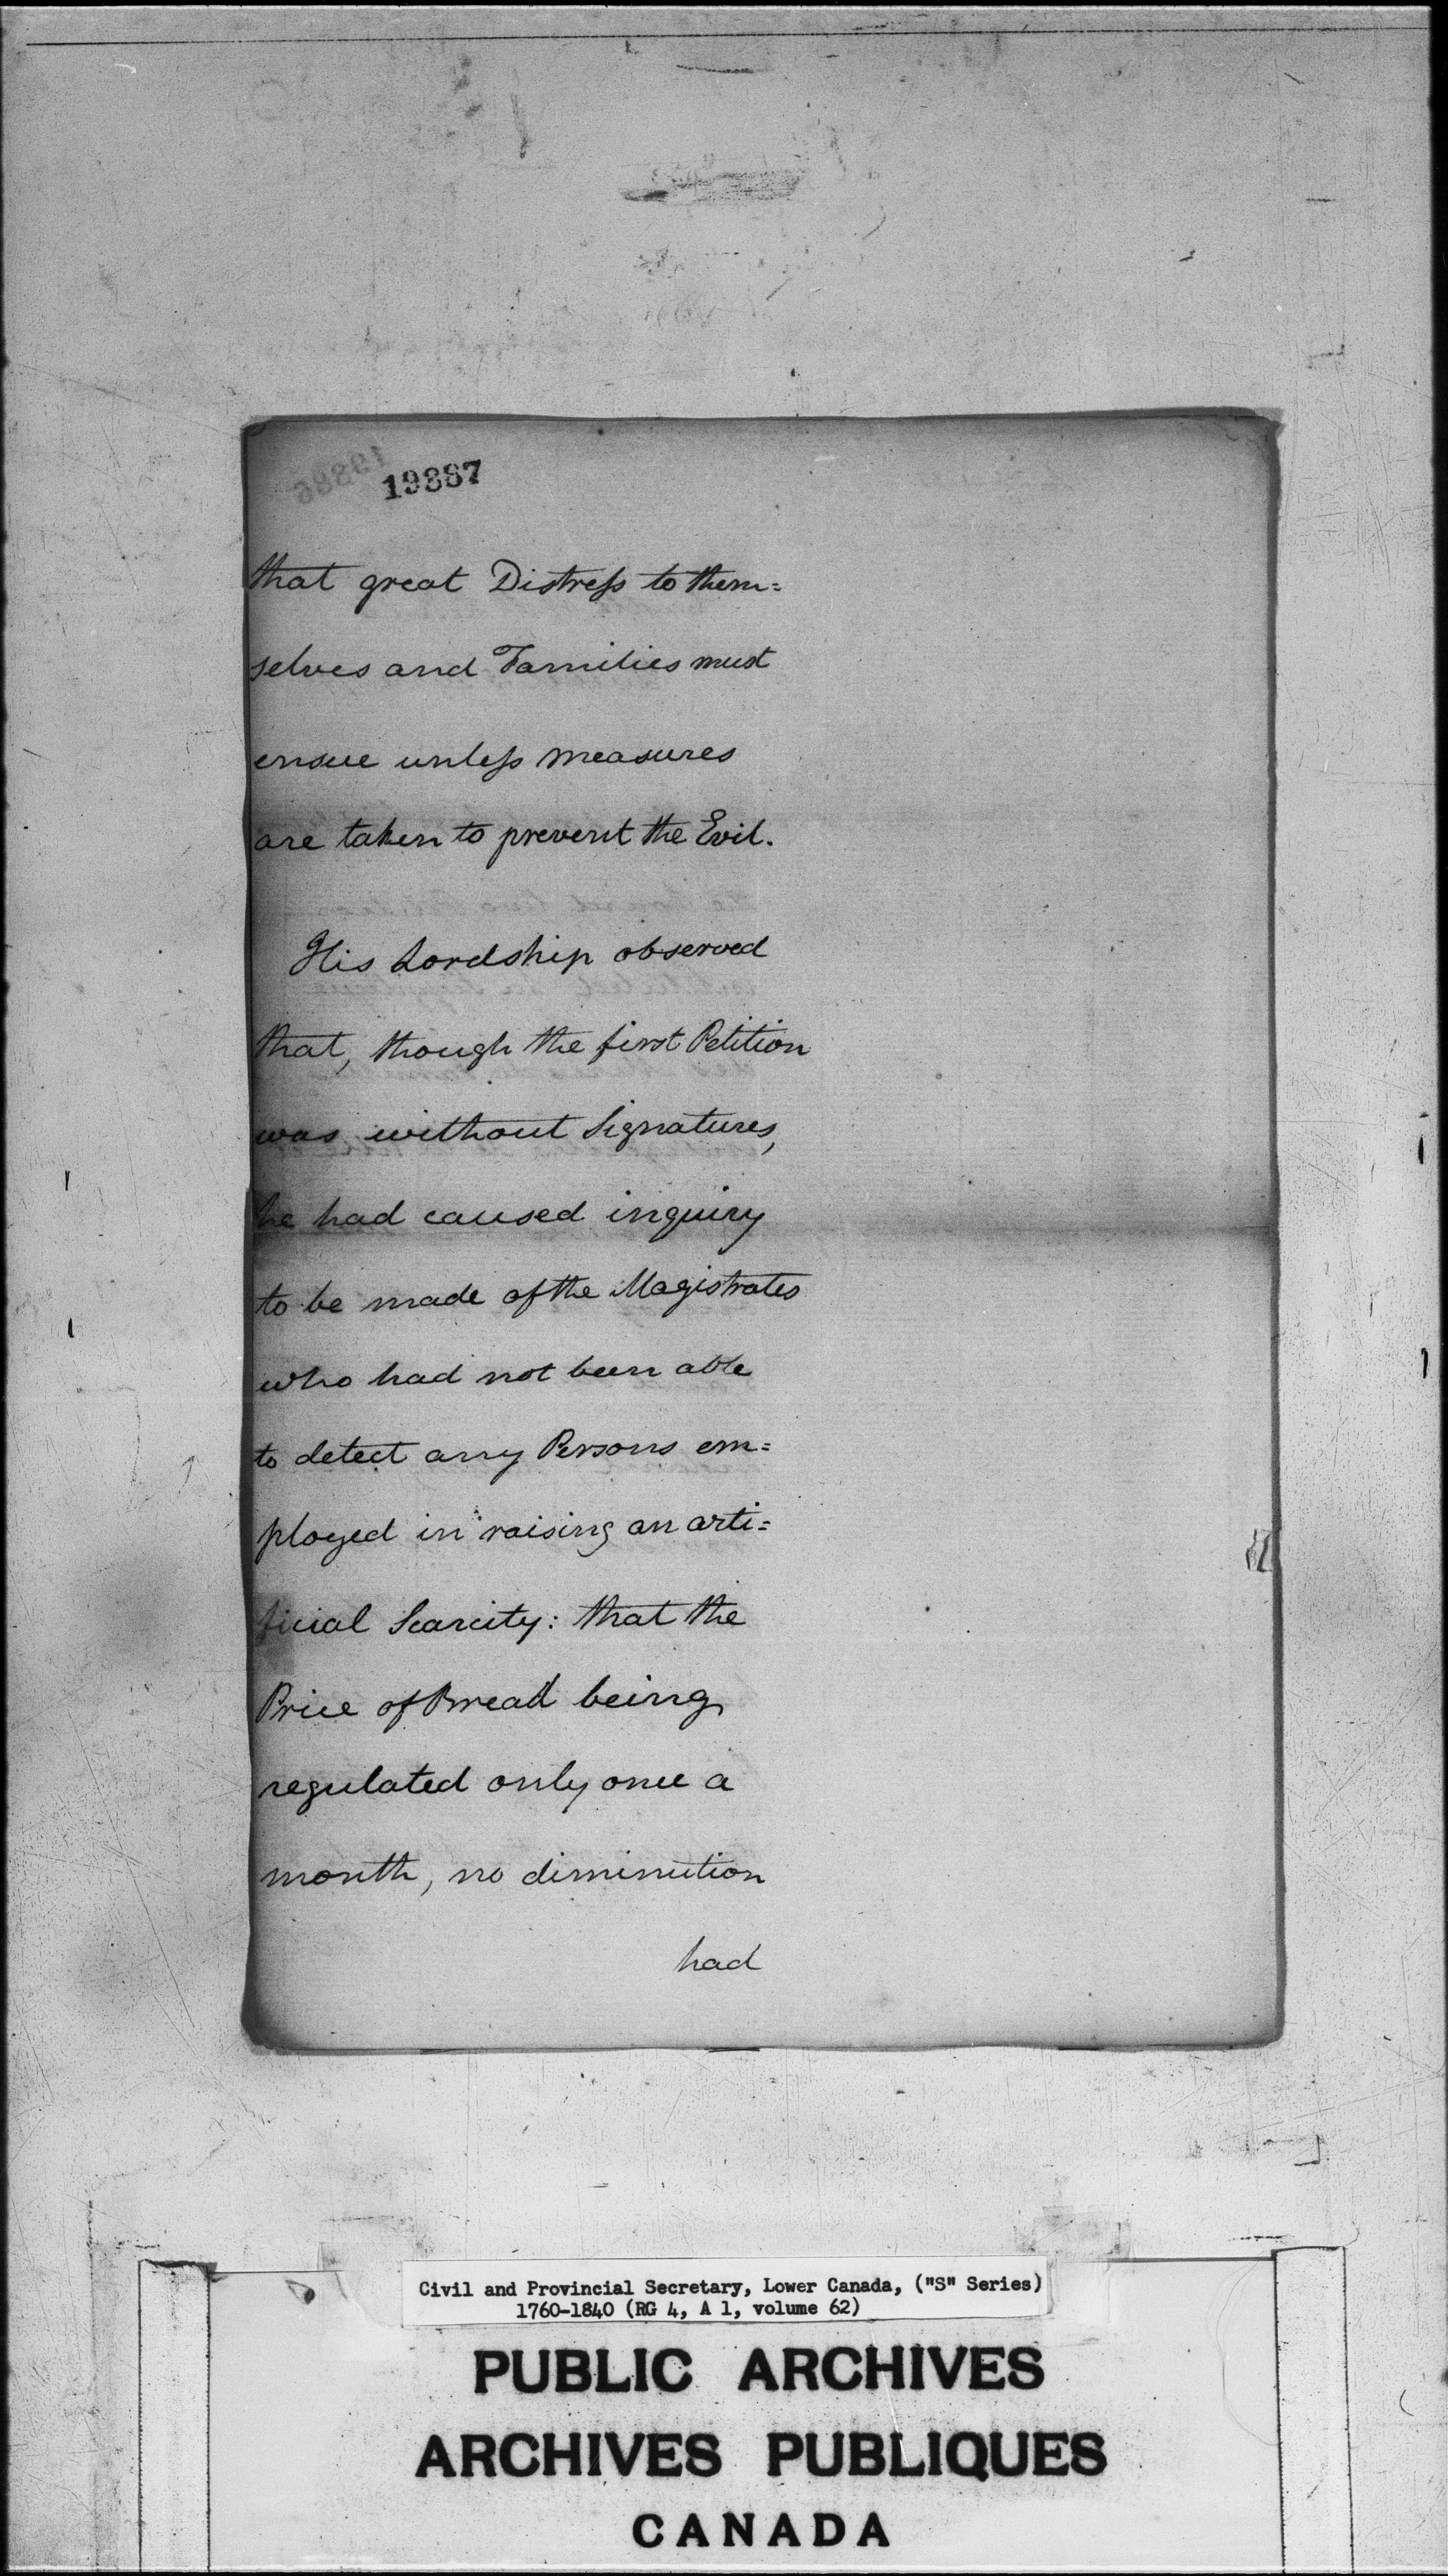 19887
that great Distress to them=
selves and Families must
ensue unless measures
are taken to prevent the Evil.
His Lordship observed
that, though the first Petition
was without Signatures,
he had caused inquiry
to be made of the Magistrates
who had not been able
to detect any Persons em=
ployed in raising an arti=
ficial Scarcity: that the
Price of Bread being
regulated only once a
month, no diminution
had
Civil and Provincial Secretary, Lower Canada, ("S" Series)
1760-1840 (RG 4, A 1, volume 62)
PUBLIC ARCHIVES
ARCHIVES PUBLIQUES
CANADA